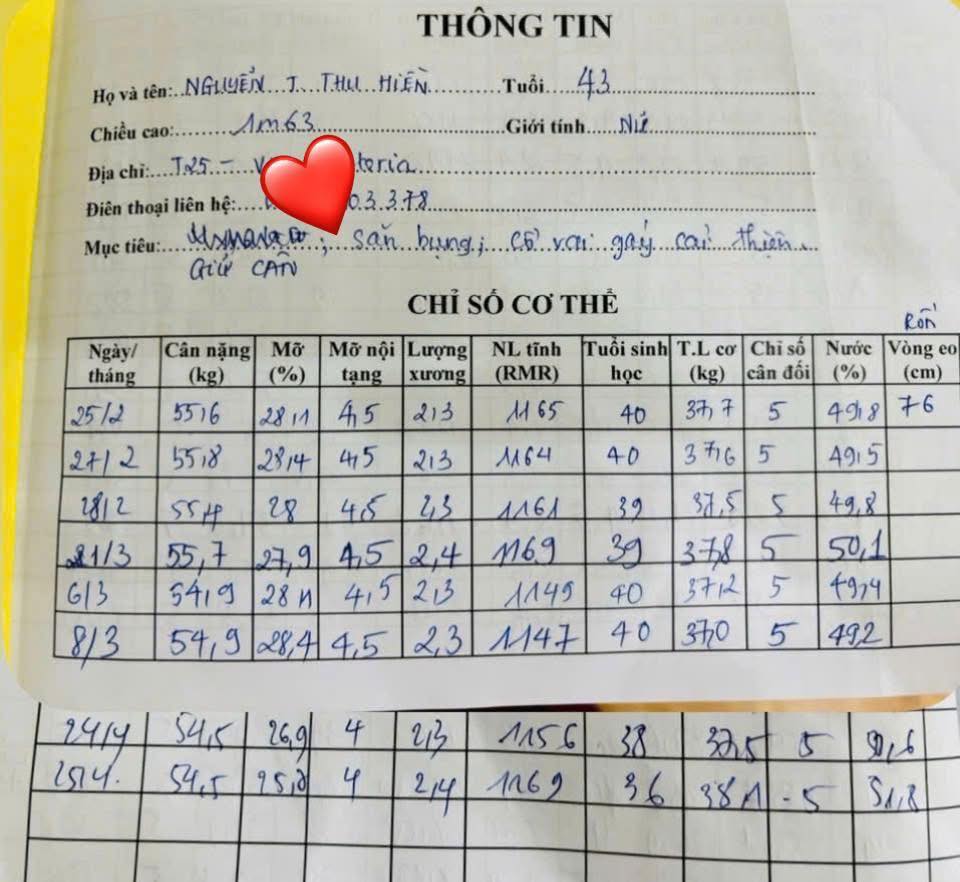 THÔNG TIN
Họ và tên: NGUYỄN T. THU HIỀN Tuổi 43
Chiều cao: 1m63 Giới tính Nữ
Địa chỉ: T25 - teria
Điên thoại liên hệ: 03.378
Mục tiêu: ; săn bụng; cổ vai gáy cải thiện
GIỮ CÂN
CHỈ SỐ CƠ THỂ
Rốn
Ngày/tháng Cân nặng (kg) Mỡ (%) Mỡ nội tạng Lượng xương NL tĩnh (RMR) Tuổi sinh học T.L cơ (kg) Chỉ số cân đối Nước (%) Vòng eo (cm)
25/2 55,6 28,1 4,5 2,3 1165 40 37,7 5 49,8 76
27/2 55,8 28,4 4,5 2,3 1164 40 37,6 5 49,5
28/2 55,4 28 4,5 2,3 1161 39 37,5 5 49,8
1/3 55,7 27,9 4,5 2,4 1169 39 37,8 5 50,1
6/3 54,9 28,1 4,5 2,3 1149 40 37,2 5 49,4
8/3 54,9 28,4 4,5 2,3 1147 40 37,0 5 49,2
24/4 54,5 26,9 4 2,3 1156 38 37,5 5 50,6
25/4. 54,5 4 2,4 1169 36 38,1 - 5 51,8